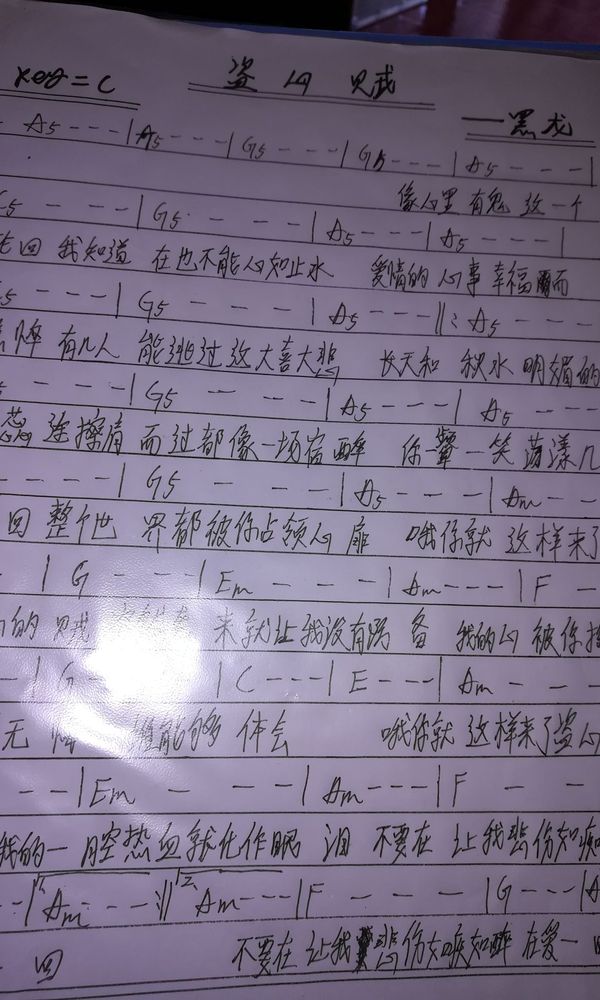 Key=C 盗心贼
——黑龙
- A5 - - - | A5 - - - | G5 - - - | G5 - - - | A5 - - - |
像心里有鬼 这一个
5 - - - | G5 - - - | A5 - - - | A5 - - - |
回 我知道 在也不能心如止水 爱情的 心事 幸福而
5 - - - | G5 - - - | A5 - - - ||: A5 - - -
有几人 能逃过这大喜大悲 长天和 秋水 明媚的
- - - | G5 - - - | A5 - - - | A5 - - -
途擦肩 而过都像一场宿醉 你一颦一笑 荡漾几
- - - - | G5 - - - | A5 - - - | Am - - -
回 整个世 界都被你占领心扉 哦你就 这样来了
- | G - - - | Em - - - | Am - - - | F -
的 贼 来就让我没有防备 我的心 被你
- - | G - - - | C - - - | E - - - | Am - -
无 谁能够 体会 哦你就 这样来了盗心
- - | Em - - - | Am - - - | F - -
我的一 腔热血就化作眼 泪 不要在 让我悲伤如痴
- - | 1. Am - - - :|| 2. Am - - - | F - - - | G - - - | A
- 回 不要在 让我悲伤如痴如醉 在爱一